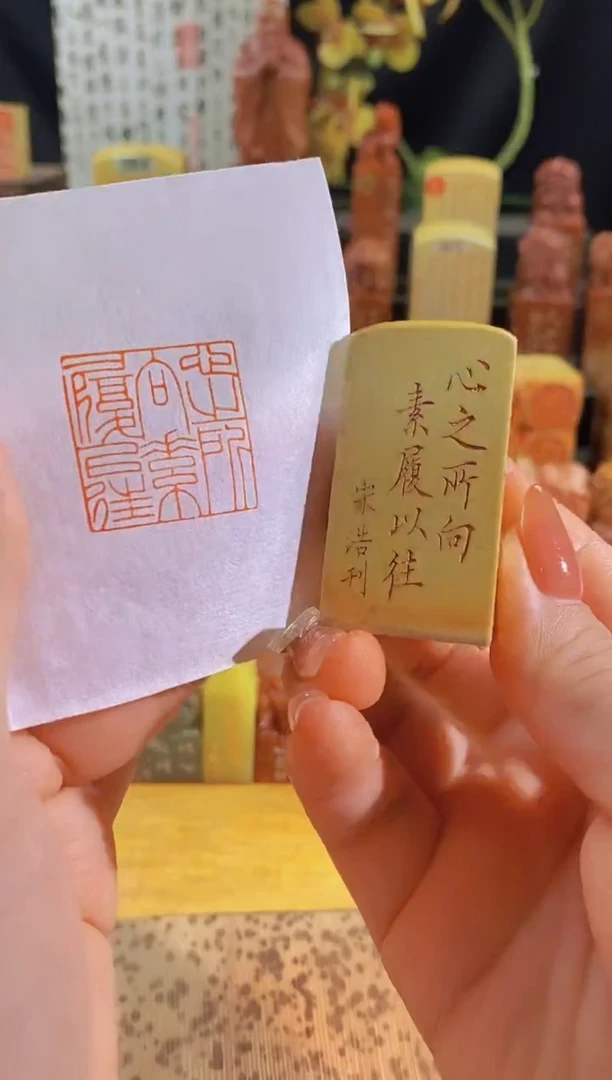 心之所向
素履以往
宋浩刊
心之所
向素
履以往